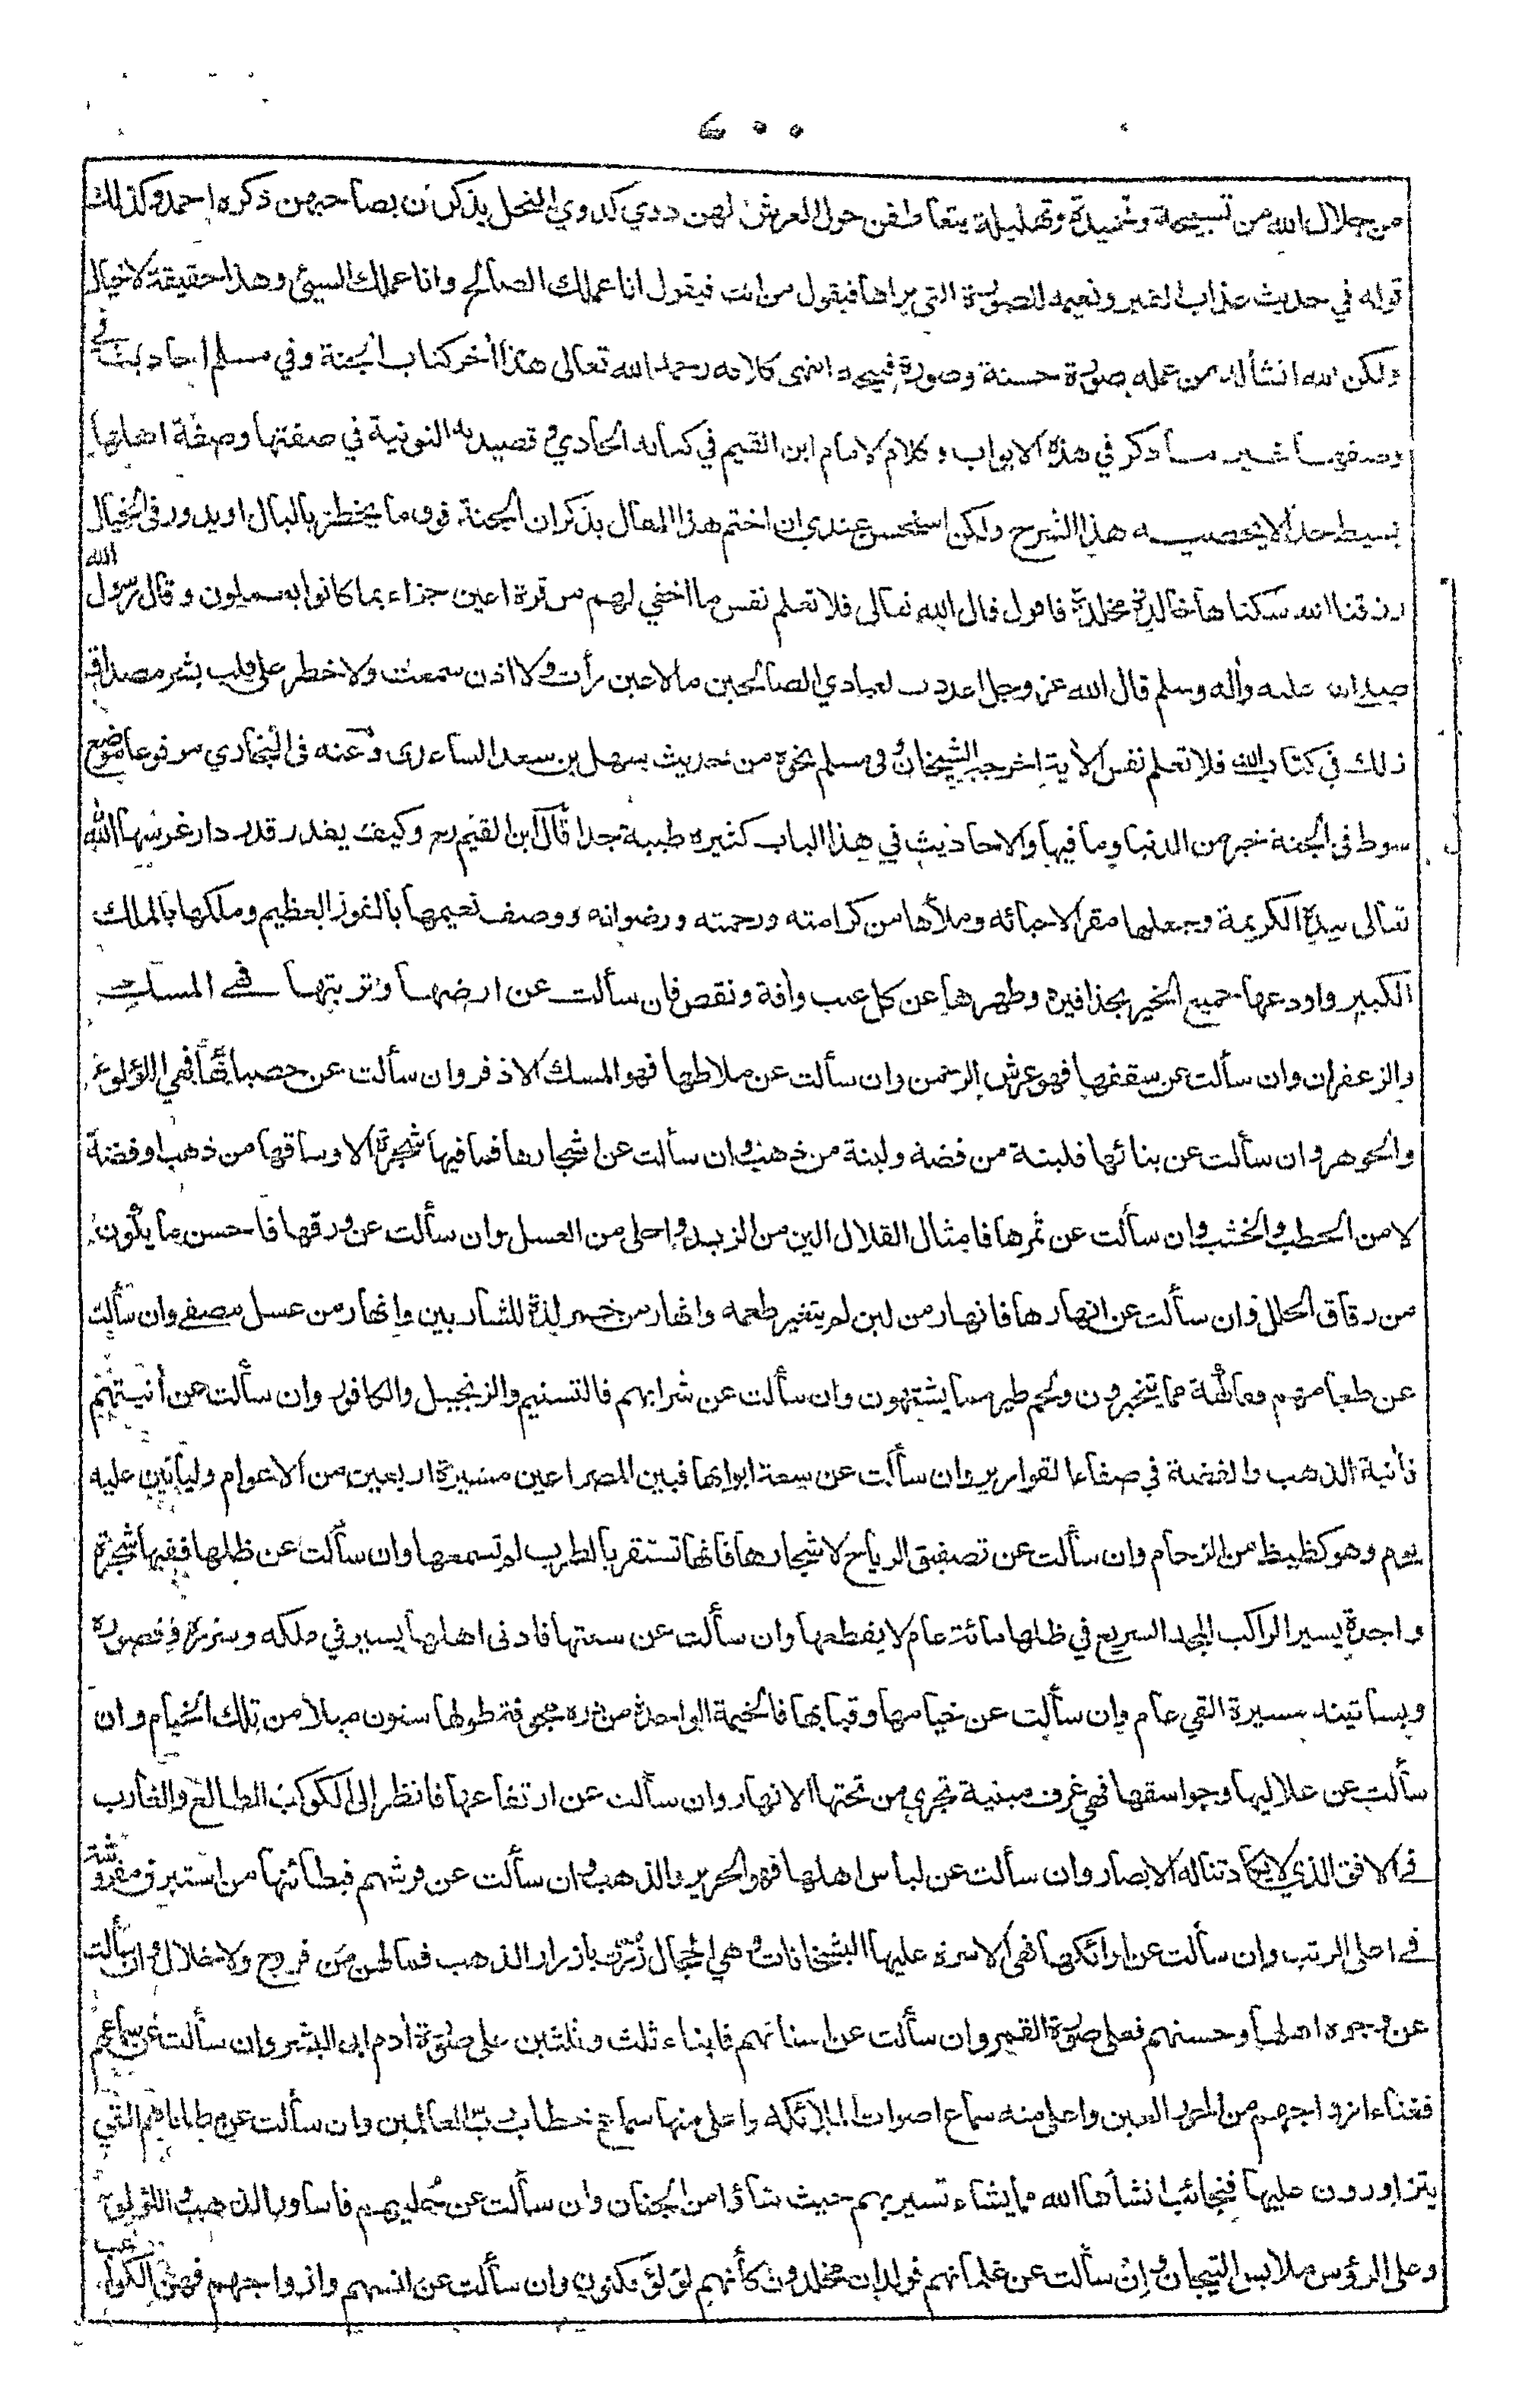 ٥٠٠
من جلال الله من تسبيحة وتحميدة وتهليلة يتعاطفن حول العرش لهن دوي كدوي النحل يذكرن بصاحبهن ذكره احمد وكذلك
قوله في حديث عذاب القبر ونعيمه للصورة التي يراها فيقول من انت فيقول انا عملك الصالح وانا عملك السيئ وهذا حقيقة لاخيال
ولكن الله انشأ له من عمله صورة حسنة وصورة قبيحة انتهى كلامه رحمه الله تعالى هذا أخر كتاب الجنة وفي مسلم احاديث في
وصفها غير ما ذكر في هذه الابواب وكلام الامام ابن القيم في كتابه الحادي و قصيدته النونية في صفتها وصفة اهلها
بسيط جدا لا يختصبه هذا الشرح ولكن استحسن عندي ان اختم هذا المقال بذكر ان الجنة فوق ما يخطر بالبال او يدور في الخيال
رزقنا الله سكناها خالدة مخلدة فاقول قال الله تعالى فلا تعلم نفس ما اخفي لهم من قرة اعين جزاء بما كانوا يعملون وقال رسول الله
صلى الله عليه وأله وسلم قال الله عز وجل اعددت لعبادي الصالحين ما لا عين رأت ولا اذن سمعت ولا خطر على قلب بشر مصداق
ذلك في كتاب الله فلا تعلم نفس الأية اخرجه الشيخان وفي مسلم نحوه من حديث سهل بن سعد الساعدي وعنه في البخاري مرفوعا موضع
سوط في الجنة خير من الدنيا وما فيها والاحاديث في هذا الباب كثيرة طيبة جدا قال ابن القيم رح وكيف يقدر قدر دار غرسها الله
تعالى بيده الكريمة وجعلها مقرا لاحبائه وملأها من كرامته ورحمته ورضوانه ووصف نعيمها بالفوز العظيم وملكها بالملك
الكبير واودعها جميع الخير بحذافيره وطهرها عن كل عيب وأفة ونقص فان سألت عن ارضها وتربتها فهي المسك
والزعفران وان سألت عن سقفها فهو عرش الرحمن وان سألت عن ملاطها فهو المسك الاذفر وان سألت عن حصبائها فهي اللؤلوء
والجوهر وان سألت عن بنائها فلبنة من فضة ولبنة من ذهب وان سألت عن اشجارها فما فيها شجرة الا وساقها من ذهب او فضة
لا من الحطب والخشب وان سألت عن ثمرها فامثال القلال الين من الزبد واحلى من العسل وان سألت عن ورقها فاحسن ما يكون
من رقاق الحلل وان سألت عن انهارها فانهار من لبن لم يتغير طعمه وانهار من خمر لذة للشاربين وانهار من عسل مصفى وان سألت
عن طعامهم ففاكهة مما يتخيرون ولحم طير مما يشتهون وان سألت عن شرابهم فالتسنيم والزنجبيل والكافور وان سألت عن أنيتهم
فأنية الذهب والفضة في صفاء القوارير وان سألت عن سعة ابوابها فبين المصراعين مسيرة اربعين من الاعوام وليأتين عليه
يوم وهو كظيظ من الزحام وان سألت عن تصفيق الرياح لاشجارها فانها تستفز بالطرب لم تسمعها وان سألت عن ظلها ففيها شجرة
واحدة يسير الراكب المجد السريع في ظلها مائة عام لا يقطعها وان سألت عن سعتها فادنى اهلها يسير في ملكه وسرره وقصوره
وبساتينه مسيرة الفي عام وان سألت عن خيامها وقبابها فالخيمة الواحدة من درة مجوفة طولها ستون ميلا من تلك الخيام وان
سألت عن علاليها وجواسقها فهي غرف مبنية تجري من تحتها الانهار وان سألت عن ارتفاعها فانظر الى الكواكب الطالع والغارب
في الافق الذي لا يكاد تناله الابصار وان سألت عن لباس اهلها فهو الحرير والذهب وان سألت عن فرشهم فبطائنها من استبرق مفروشة
في اعلى الرتب وان سألت عن ارائكها فهي الاسرة عليها البشخانات وهي الحجال زررت بازرار الذهب فما لهن من فروج ولا خلال وان سألت
عن وجوه اهلها وحسنهم فعلى صورة القمر وان سألت عن اسنانهم فابناء ثلث وثلثين على صورة أدم ابي البشر وان سألت عن سماعهم
فغناء ازواجهم من الحور العين واعلى منه سماع اصوات الملائكة واعلى منها سماع خطاب رب العالمين وان سألت عن مطاياهم التي
يتزاورون عليها فنجائب انشأها الله مما يشاء تسير بهم حيث شاؤا من الجنان وان سألت عن حليهم فاساور الذهب واللؤلؤ
وعلى الرؤس ملابس التيجان وان سألت عن غلمانهم فولدان مخلدون كأنهم لؤلؤ مكنون وان سألت عن انسهم وازواجهم فهن الكواعب